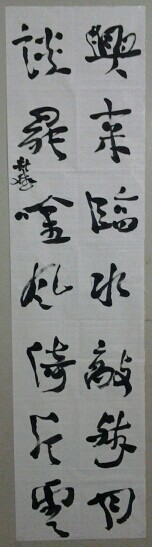 興來臨水敲殘月
談罷吟風倚片雲